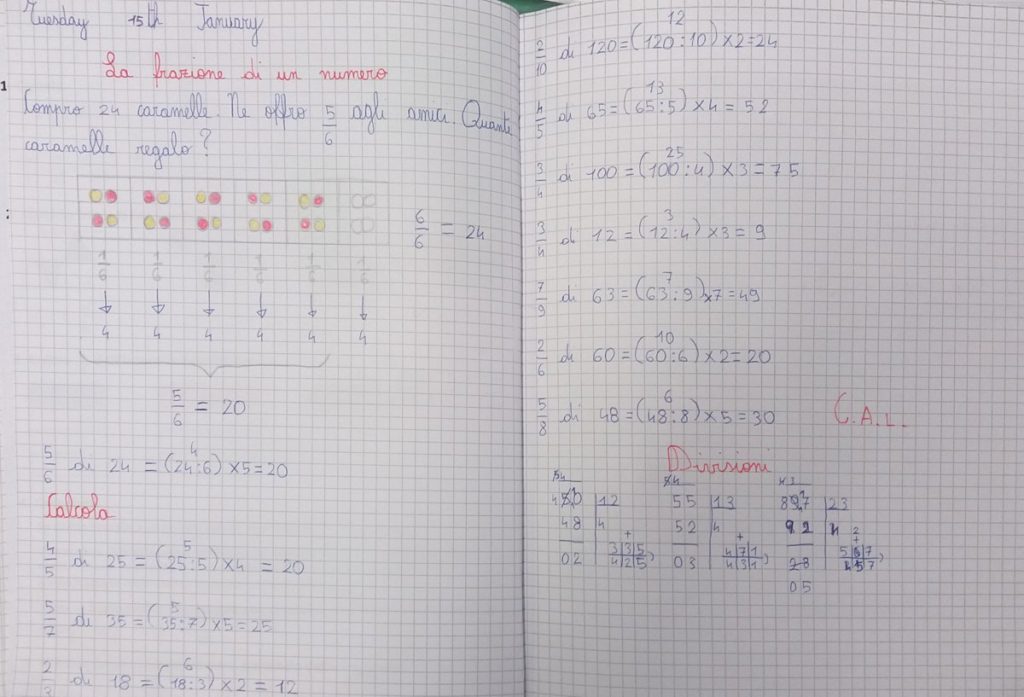 Tuesday 15th January
La frazione di un numero
Compro 24 caramelle. Ne offro 5/6 agli amici. Quante
caramelle regalo?
6/6 = 24
1/6 1/6 1/6 1/6 1/6 1/6
4 4 4 4 4 4
5/6 = 20
4
5/6 di 24 = (24:6) ×5 = 20
Calcola
5
4/5 di 25 = (25:5) ×4 = 20
5
5/7 di 35 = (35:7) ×5 = 25
6
2/3 di 18 = (18:3) ×2 = 12
12
2/10 di 120 = (120:10) ×2 = 24
13
4/5 di 65 = (65:5) ×4 = 52
25
3/4 di 100 = (100:4) ×3 = 75
3
3/4 di 12 = (12:4) ×3 = 9
7
7/9 di 63 = (63:9) ×7 = 49
10
2/6 di 60 = (60:6) ×2 = 20
6
5/8 di 48 = (48:8) ×5 = 30 C.A.L.
Divisioni
12 55 13 23
48 4 52 4
02 03
05